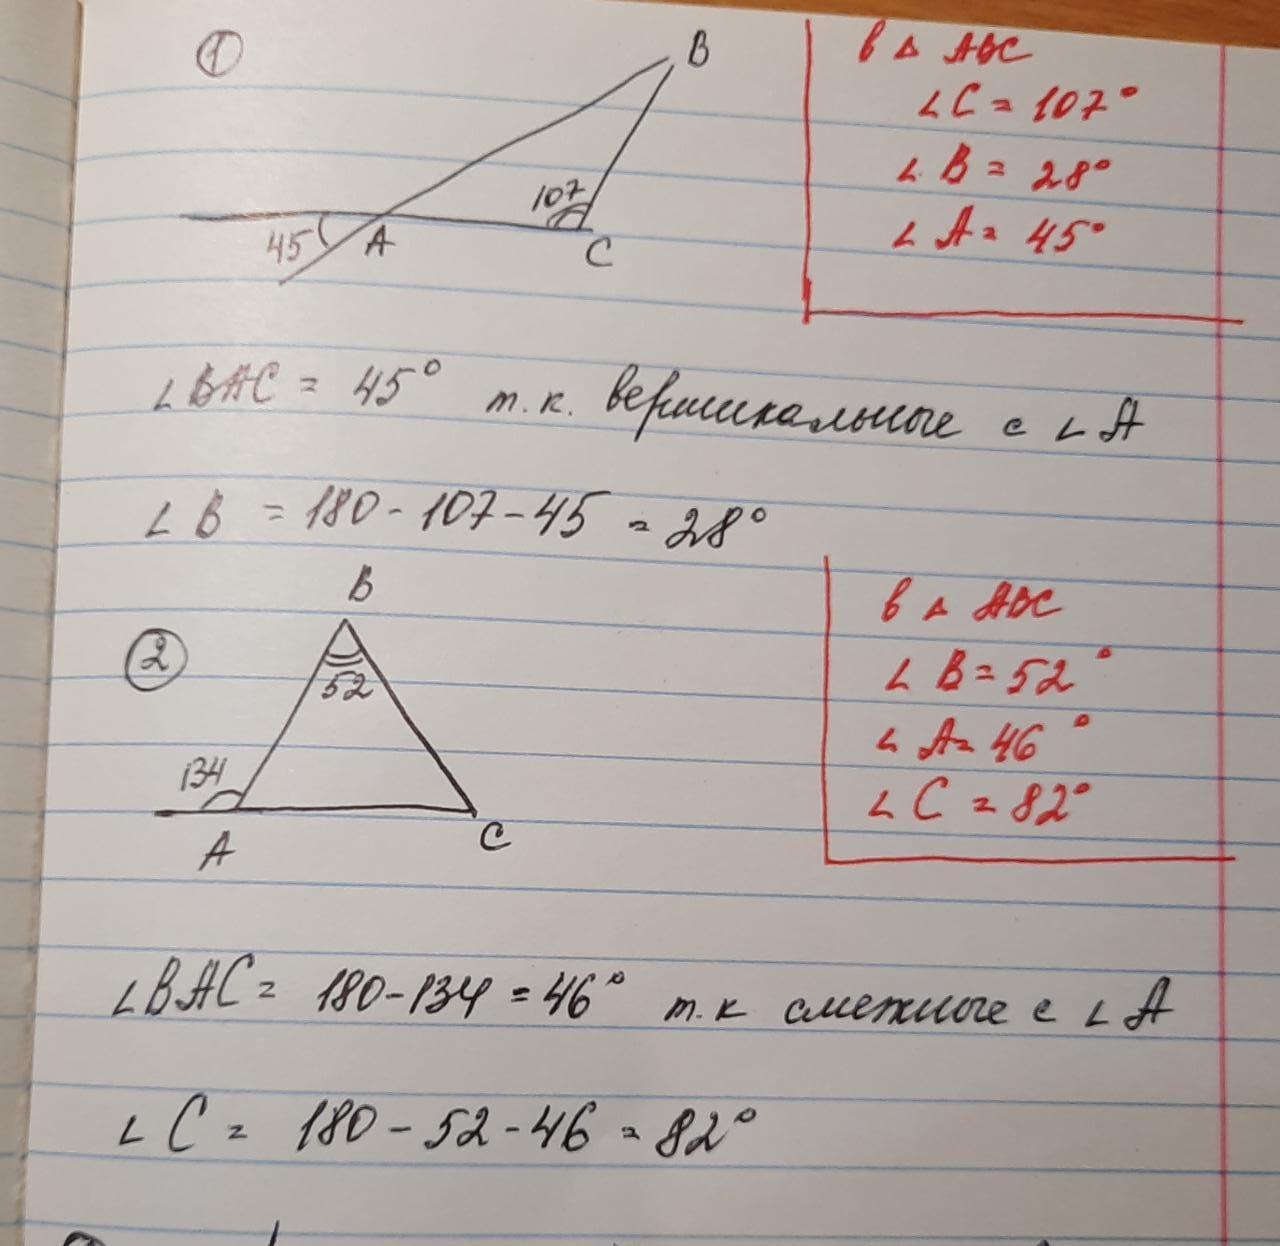 1
B
107
45
A
C
в △ ABC
∠C = 107°
∠B = 28°
∠A = 45°
∠BAC = 45° т.к. вертикальные с ∠A
∠B = 180 - 107 - 45 = 28°
2
B
52
134
A
C
в △ ABC
∠B = 52°
∠A = 46°
∠C = 82°
∠BAC = 180 - 134 = 46° т.к смежные с ∠A
∠C = 180 - 52 - 46 = 82°